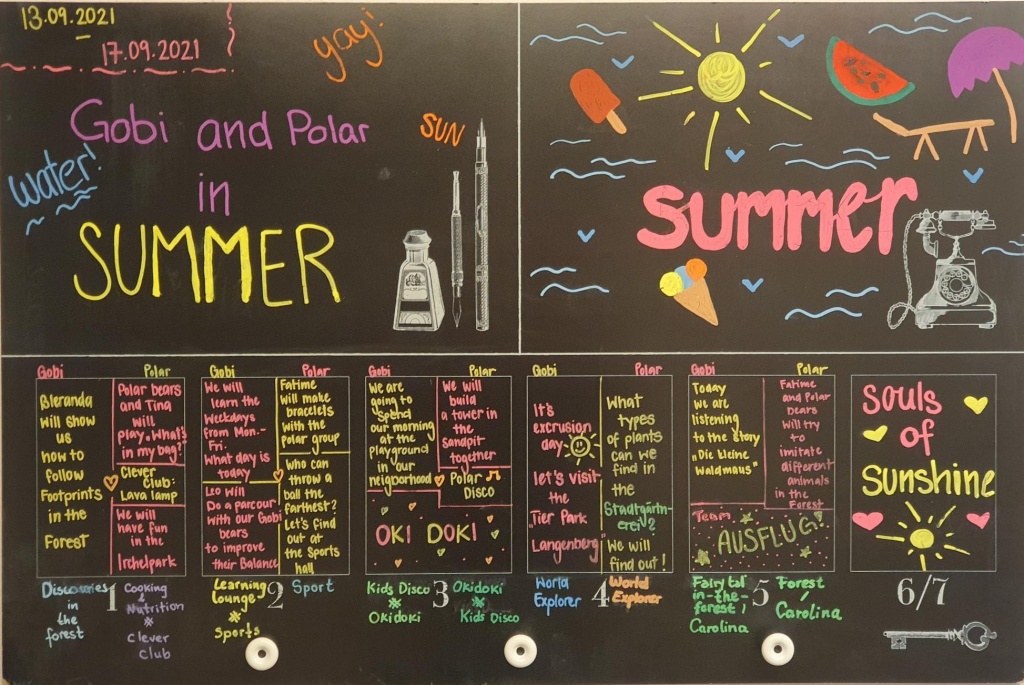 13.09.2021
17.09.2021
yay!
Gobi and Polar
in
SUMMER
water!
SUN
summer
Gobi
Bleranda
will show
us
how to
follow
Footprints
in the
Forest
Polar
Polar bears
and Tina
will
play „What's
in my bag?"
Clever
Club:
Lava lamp
We will
have fun
in the
Irchelpark
Discoveries
in
the
forest
1
Cooking
&
Nutrition
Clever
Club
Gobi
We will
learn the
Weekdays
from Mon.-
Fri.
What day is
today
Leo will
Do a parcour
with our Gobi
bears
to improve
their Balance
Polar
Fatime
will make
bracelets
with the
polar group
who can
throw a
ball the
farthest?
Let's find
out at
the Sports
hall
Learning
lounge
Sports
2
Sport
Gobi
We are
going to
spend
our morning
at the
playground
in our
neigborhood
Polar
We will
build
a tower in
the
sandpit
together
Polar
DISCO
OKI DOKI
Kids Disco
Okidoki
3
Okidoki
Kids Disco
Gobi
It's
excrusion
day
let's visit
the
„Tier Park
Langenberg"
Polar
What
types
of plants
can we
find in
the
Stadtgärtn-
erei?
We will
find out!
World
Explorer
4
World
Explorer
Gobi
Today
we are
listening
to the story
„Die kleine
Waldmaus"
Polar
Fatime
and Polar
bears
will try
to
imitate
different
animals
in the
Forest
Team
AUSFLUG!
Fairy tal
in-the-
forest /
Carolina
5
Forest
/
Carolina
souls
of
sunshine
6/7